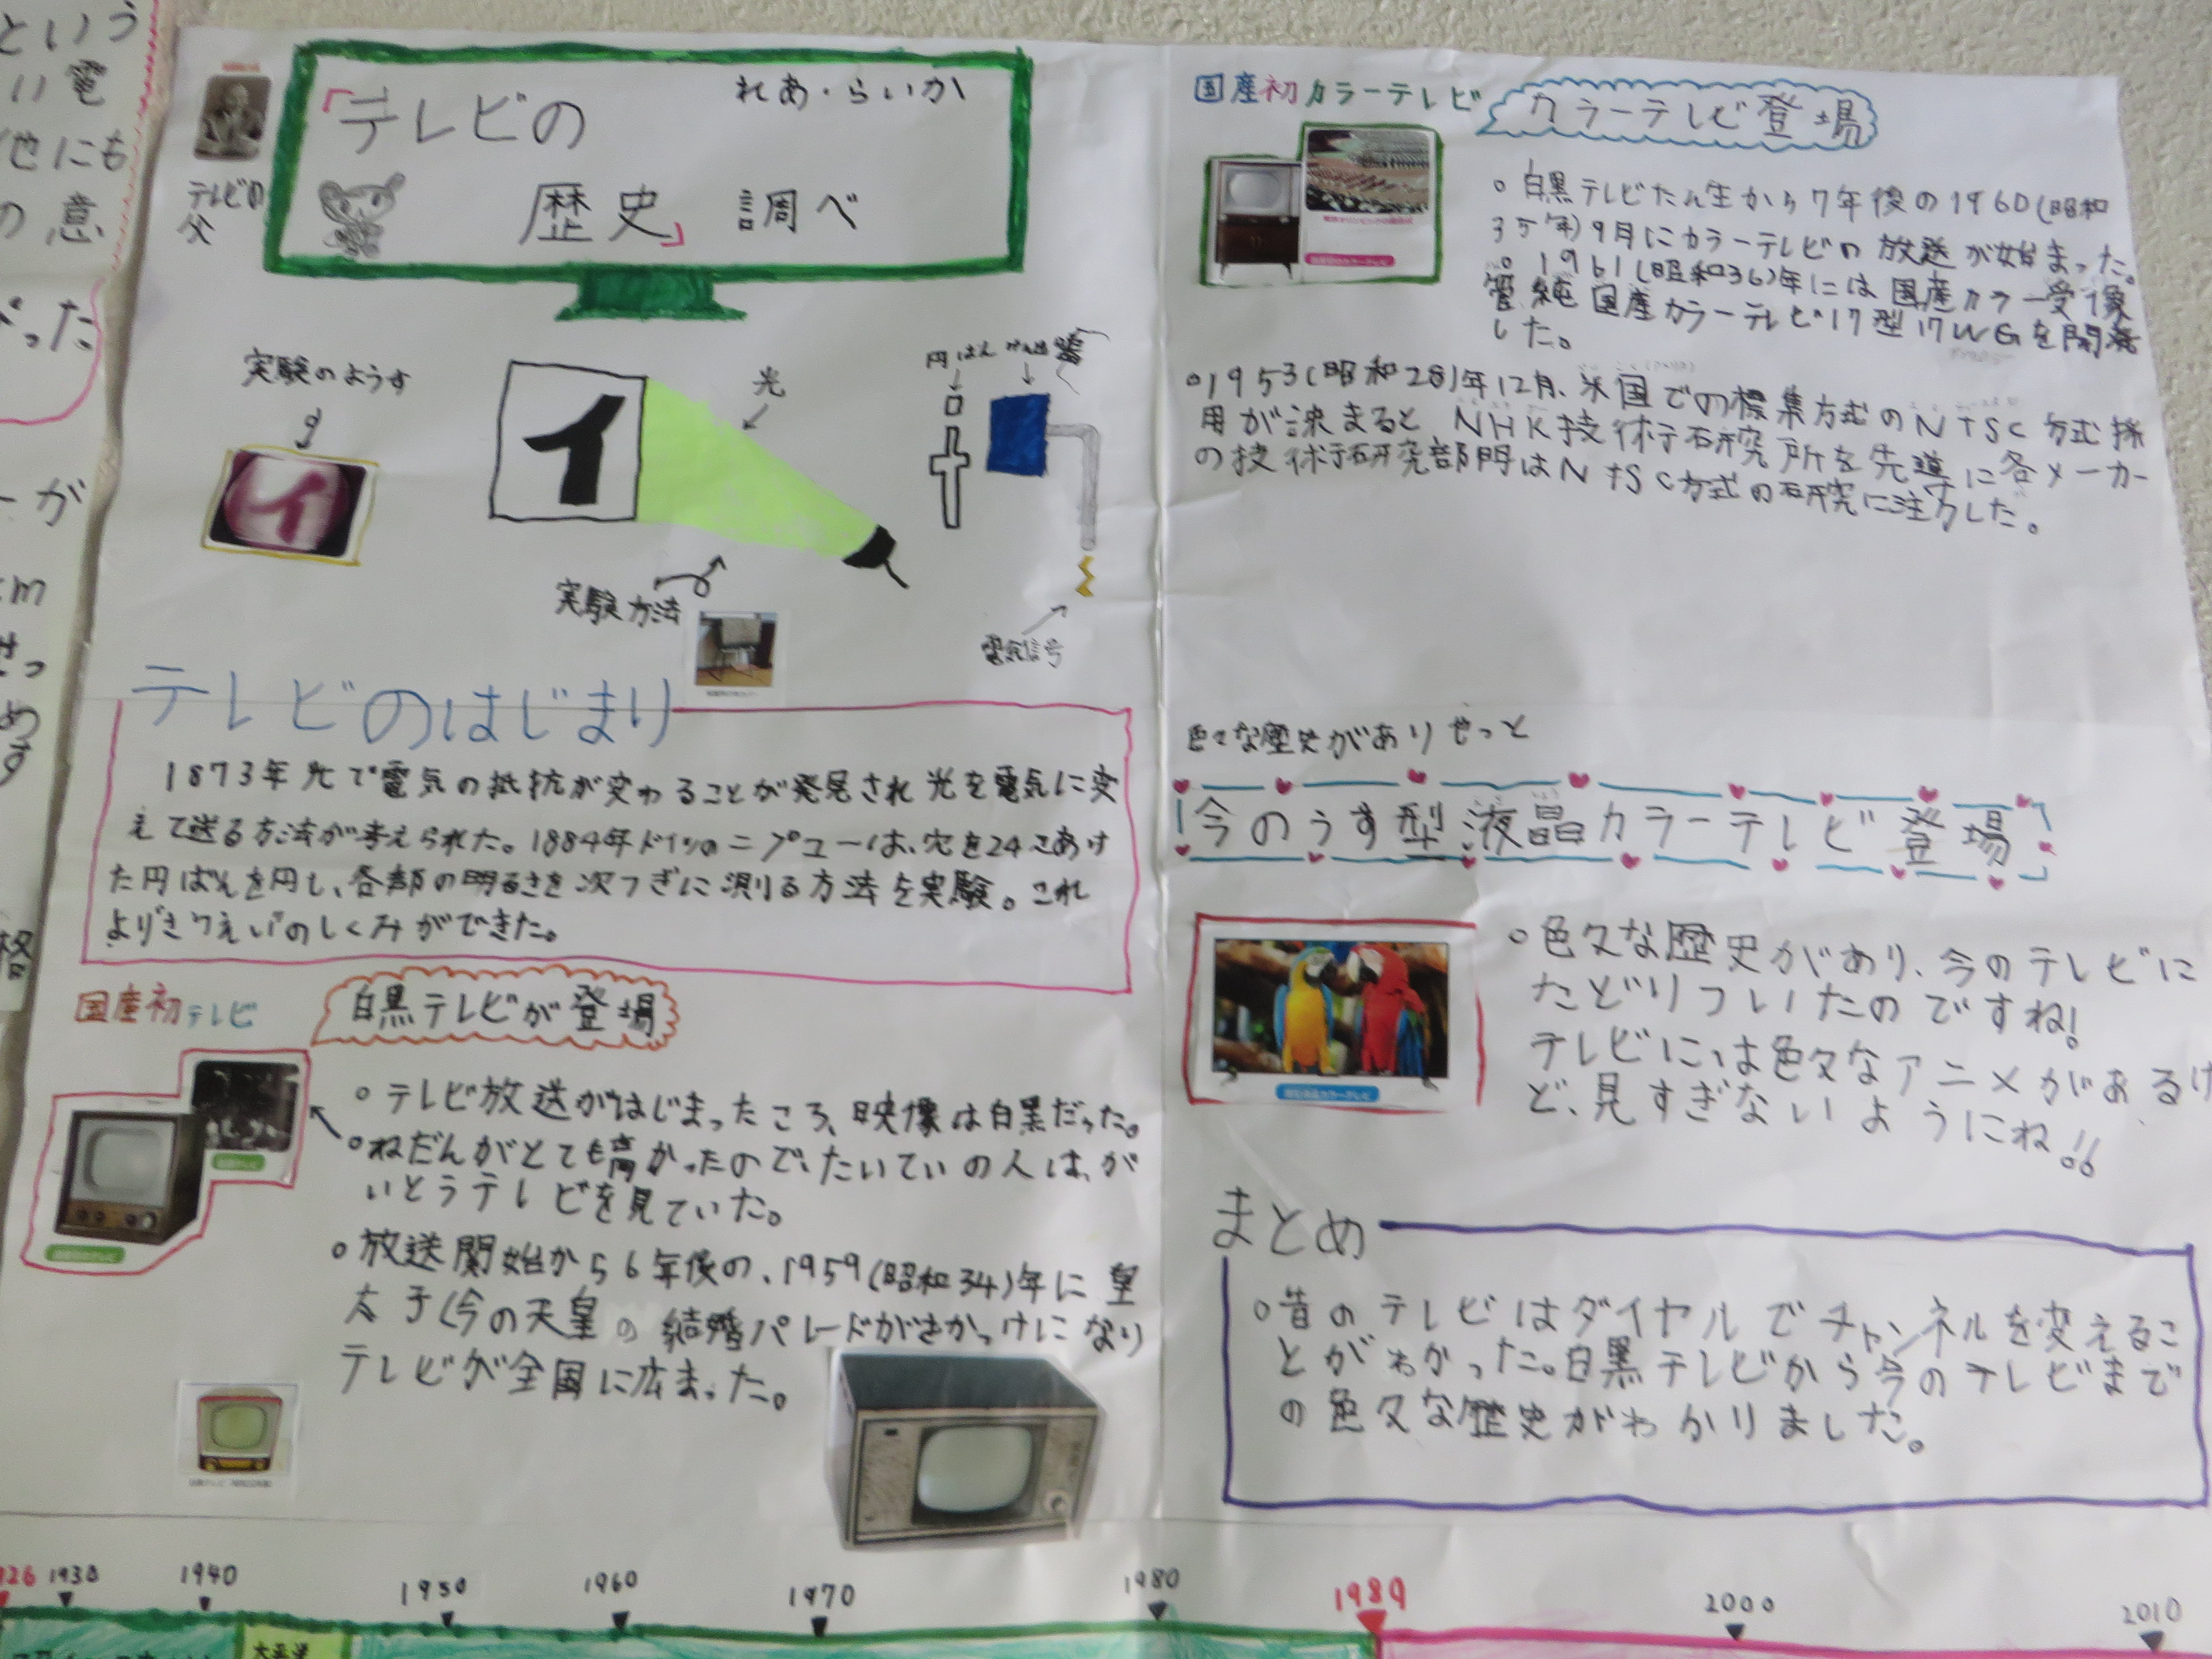 という
い電
他にも
の意
べった
ーが
cm
せっ
め
す
格
テレビの
父
「テレビの
歴史」調べ
れあ・らいか
実験のようす
イ
光
円ばん
電気信号
実験方法
テレビのはじまり
1873年光で電気の抵抗が変わることが発見され光を電気に変
えて送る方法が考えられた。1884年ドイツのニプコーは、穴を24こあけ
た円ばんを円し、各部の明るさを次つぎに測る方法を実験。これ
よりさつえいのしくみができた。
国産初テレビ
白黒テレビが登場
○テレビ放送がはじまったころ、映像は白黒だった。
○ねだんがとても高かったので、たいていの人は、が
いとうテレビを見ていた。
○放送開始から6年後の、1959(昭和34)年に皇
太子(今の天皇の結婚パレードがきかっけになり
テレビが全国に広まった。
国産初カラーテレビ
カラーテレビ登場
○白黒テレビたん生から7年後の1960(昭和
35年)9月にカラーテレビの放送が始まった。
○1961(昭和36)年には国産カラー受像
管純国産カラーテレビ17型17WGを開発
した。
○1953(昭和28)年12月、米国での標準方式のNTSC方式採
用が決まるとNHK技術研究所を先導に各メーカー
の技術研究部門はNTSC方式の研究に注力した。
色々な歴史がありやっと
今のうす型液晶カラーテレビ登場
○色々な歴史があり、今のテレビに
たどりついたのですね!
テレビには色々なアニメがあるけ
ど、見すぎないようにね!!
まとめ
○昔のテレビはダイヤルでチャンネルを変えるこ
とがわかった。白黒テレビから今のテレビまで
の色々な歴史がわかりました。
1930
1940
1950
1960
1970
1980
1989
2000
2010